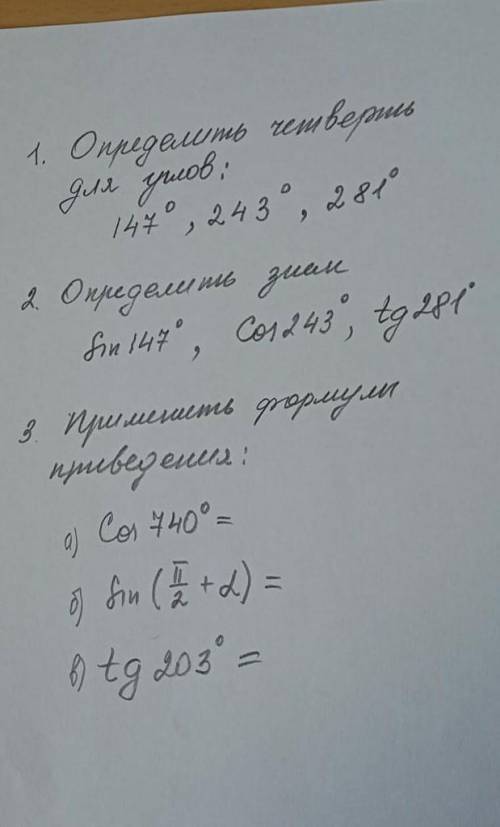 1. Определить четверть
для углов:
147°, 243°, 281°
2. Определить знак
sin 147°, Cos 243°, tg 281°
3. Применить формулы
приведения:
а) Cos 740° =
б) sin (π/2 + α) =
в) tg 203° =